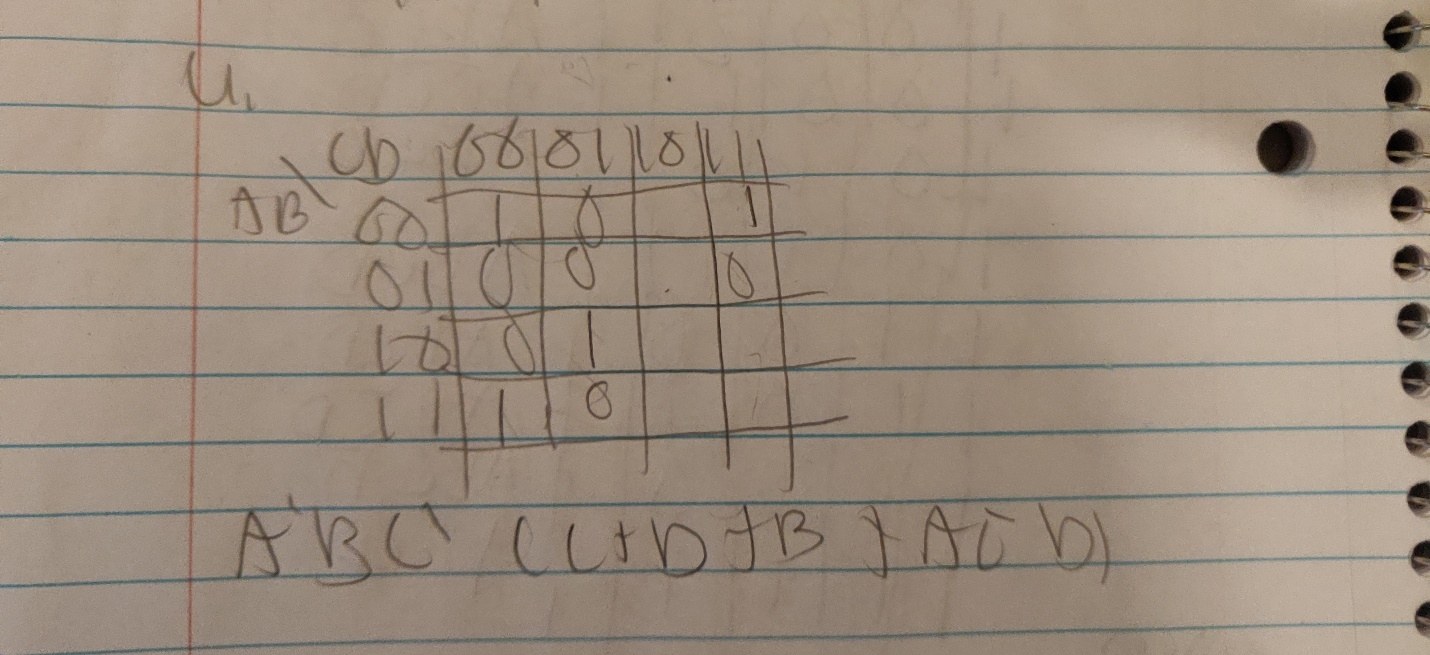 4.
CD 00 01 10 11
AB 00 1 0 1
01 0 0 0
10 0 1
11 1 0
A'BC' (C+D+B + AC D)